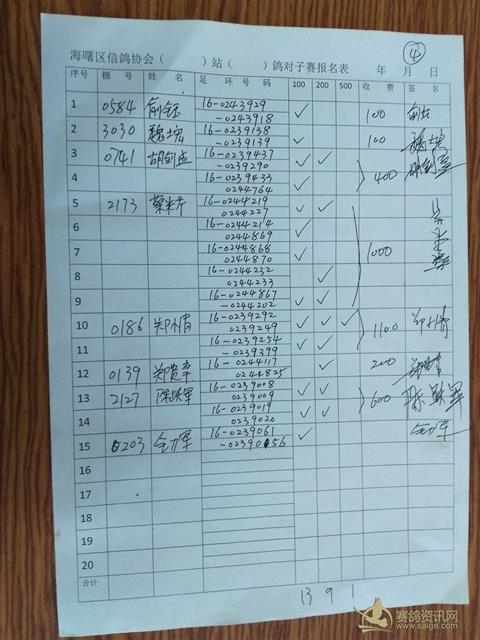 ④
海曙区信鸽协会（ ）站（ ）鸽对子赛报名表 年 月 日
序号 棚号 姓 名 足 环 号 码 100 200 500 收 费 签 名
1 0584 俞钰 16-0243929 ✓ 100
-0243918
2 3030 16-0239138 ✓ 100
-0239139
3 0741 胡剑 16-0239437 ✓ ✓ 400
-0239290
4 16-0239433 ✓
0244764
5 2173 16-0244219 ✓ ✓ 1000
-0244227
6 16-0244214 ✓
0244869
7 16-0244868 ✓ ✓
0244870
8 16-0244232 ✓
0244233
9 16-0244867 ✓ ✓
-0244202
10 0186 郑 16-0239292 ✓ ✓ ✓ 1100 郑
0239249
11 16-0239254 ✓ ✓
-0239399
12 0139 郑 16-0244117 ✓ 200
0244825
13 2127 陈 军 16-0239008 ✓ ✓ 600 陈 军
0239009
14 16-0239019 ✓ ✓
0239020
15 0203 军 16-0239061 ✓ 军
16
17
18
19
20
合计
1391
赛鸽资讯网
www.saige.com